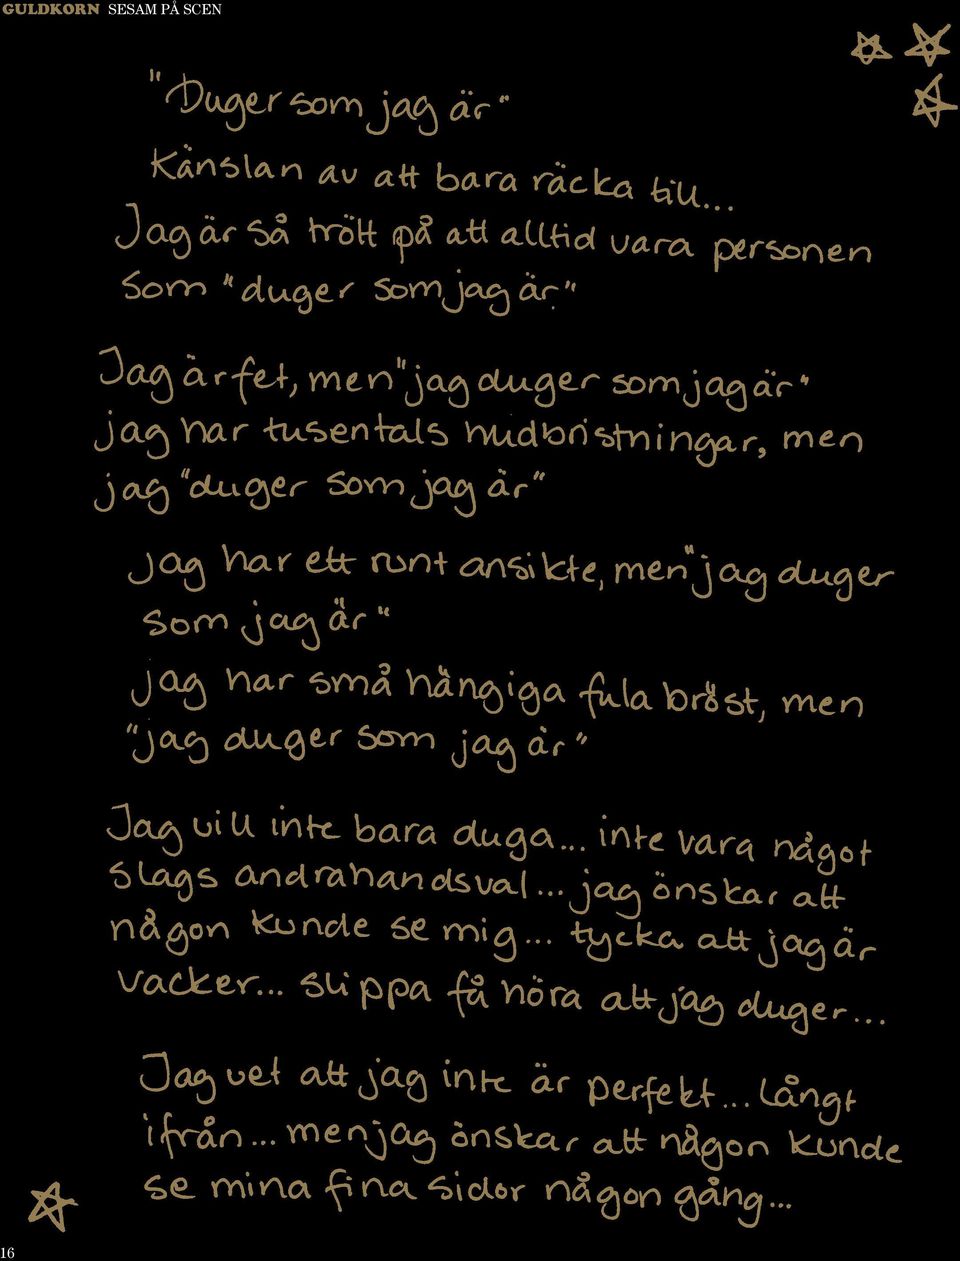 GULDKORN SESAM PÅ SCEN
"Duger som jag är"
Känslan av att bara räcka till...
Jag är så trött på att alltid vara personen
som "duger som jag är."
Jag är fet, men "jag duger som jag är"
jag har tusentals hudbristningar, men
jag "duger som jag är"
jag har ett runt ansikte, men "jag duger
som jag är"
jag har små hängiga fula bröst, men
"jag duger som jag är"
Jag vill inte bara duga... inte vara något
slags andrahandsval... jag önskar att
någon kunde se mig... tycka att jag är
vacker... slippa få höra att jag duger...
Jag vet att jag inte är perfekt... långt
ifrån... men jag önskar att någon kunde
se mina fina sidor någon gång...
16